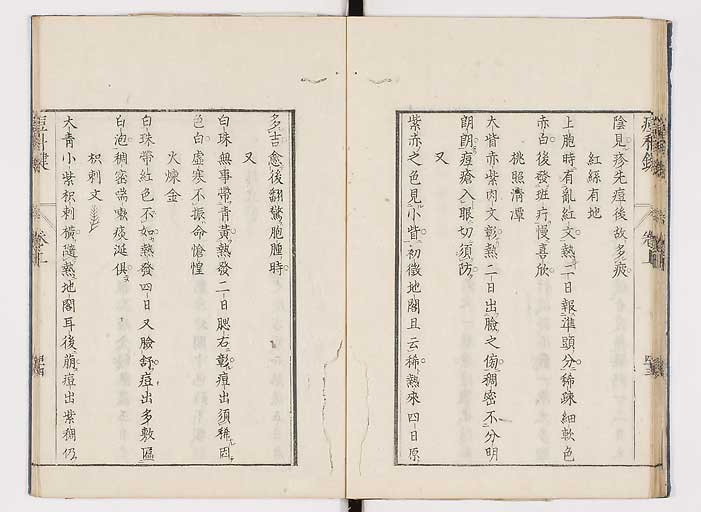 陰見疹先痘後故多瘓
紅經有地
上胞時有亂紅文熱二日報準頭分稀疎細軟色
赤白後發班疔慢喜欣
桃照清潭
大眥赤紫肉文彰熱二日出臉之傍稠密不分明
朗朗痘瘡入眼切須防
又
紫赤之色見小眥初徵地閣且云稀熱來四日原
多吉愈後翻驚胞腫時
又
白珠無事帶青黃熱發二日腮右彰痘出須稀因
色白虛寒不振命愴惶
火煉金
白珠帶紅色不如熱發四日又臉舒痘出多敷區
白泡稠密喘嗽痰涎俱
枳刺文
大青小紫枳刺橫隨熱地閣耳後崩痘出紫稠仍
痘科鍵
卷上